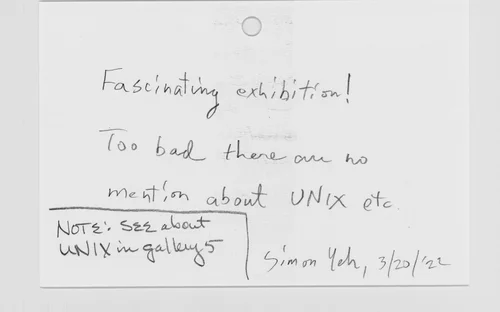 Fascinating exhibition!
Too bad there are no
mention about UNIX etc.
NOTE: SEE about
UNIX in gallery 5
Simon Yeh, 3/20/'22